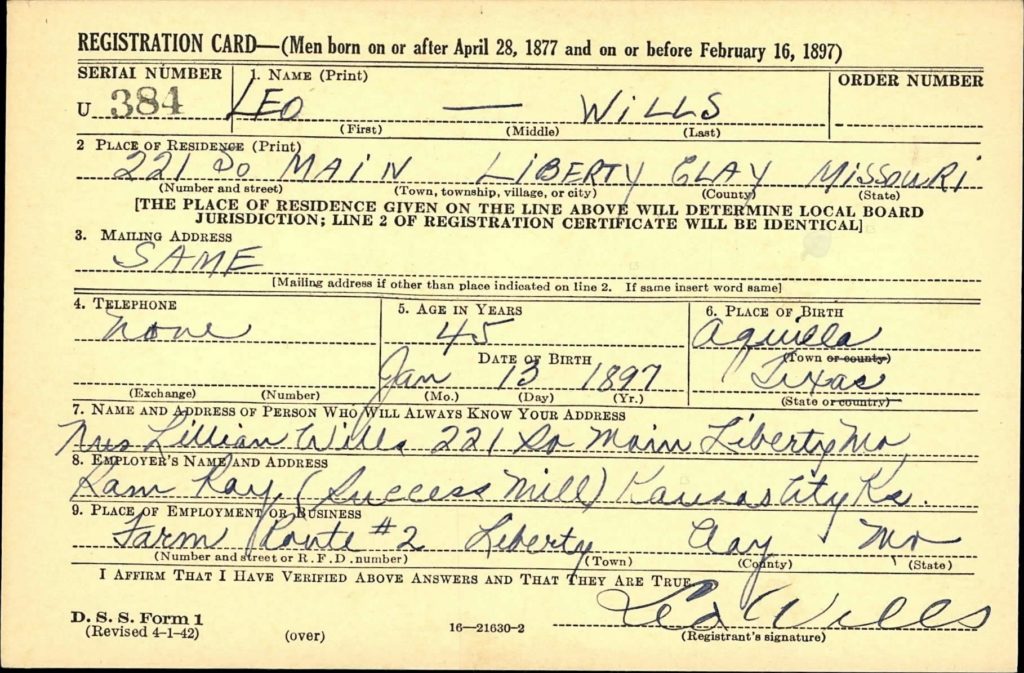 REGISTRATION CARD—(Men born on or after April 28, 1877 and on or before February 16, 1897)
SERIAL NUMBER 1. NAME (Print) ORDER NUMBER
U 384 LEO — WILLS
(First) (Middle) (Last)
2 PLACE OF RESIDENCE (Print)
221 So MAIN LIBERTY CLAY MISSOURI
(Number and street) (Town, township, village, or city) (County) (State)
[THE PLACE OF RESIDENCE GIVEN ON THE LINE ABOVE WILL DETERMINE LOCAL BOARD
JURISDICTION; LINE 2 OF REGISTRATION CERTIFICATE WILL BE IDENTICAL]
3. MAILING ADDRESS
SAME
[Mailing address if other than place indicated on line 2. If same insert word same]
4. TELEPHONE 5. AGE IN YEARS 6. PLACE OF BIRTH
None 45 Aquilla
DATE OF BIRTH (Town or county)
Jan 13 1897 Texas
(Exchange) (Number) (Mo.) (Day) (Yr.) (State or country)
7. NAME AND ADDRESS OF PERSON WHO WILL ALWAYS KNOW YOUR ADDRESS
Mrs Lillian Wills 221 So Main Liberty Mo,
8. EMPLOYER'S NAME AND ADDRESS
Sam Ray, (Success Mill) Kansas City Ks.
9. PLACE OF EMPLOYMENT OR BUSINESS
Farm Route #2 Liberty Clay Mo
(Number and street or R. F. D. number) (Town) (County) (State)
I AFFIRM THAT I HAVE VERIFIED ABOVE ANSWERS AND THAT THEY ARE TRUE.
Leo Wills
D. S. S. Form 1
(Revised 4-1-42) (over) 16—21630-2 (Registrant's signature)